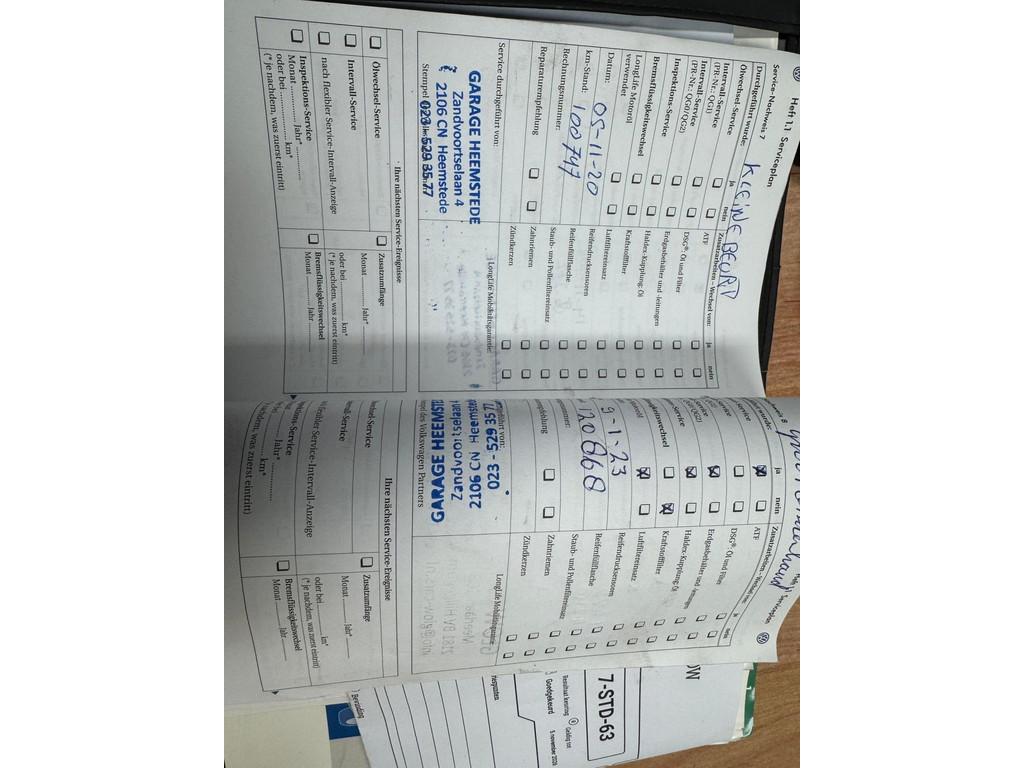 Heft 1.1 Serviceplan
Service-Nachweis 7
KLEINE BEURT
Durchgeführt wurde:
ja
nein
Ölwechsel-Service
Intervall-Service
(PR-Nr.: QG1)
Intervall-Service
(PR-Nr.: QG0/QG2)
Inspektions-Service
Bremsflüssigkeitswechsel
LongLife Motoröl
verwendet
Datum: 05-11-20
km-Stand: 100747
Rechnungsnummer:
Reparaturempfehlung
Service durchgeführt von:
GARAGE HEEMSTEDE
Zandvoortselaan 4
2106 CN Heemstede
023 - 529 35 77
Stempel
Zusatzarbeiten – Wechsel von:
ja
nein
ATF
DSG®: Öl und Filter
Erdgasbehälter und -leitungen
Haldex-Kupplung: Öl
Kraftstofffilter
Luftfiltereinsatz
Reifendrucksensoren
Reifenfüllflasche
Staub- und Pollenfiltereinsatz
Zahnriemen
Zündkerzen
LongLife Mobilitätsgarantie:
Ihre nächsten Service-Ereignisse
Ölwechsel-Service
Intervall-Service
nach flexibler Service-Intervall-Anzeige
Inspektions-Service
Monat ........ Jahr* ........
oder bei ........ km*
(* je nachdem, was zuerst eintritt)
Zusatzumfänge
Monat ........ Jahr* ........
oder bei ........ km*
(* je nachdem, was zuerst eintritt)
Bremsflüssigkeitswechsel
Monat ........ Jahr ........
Serviceplan
8
ja
nein
Service
Service
Service
9-1-23
120868
GARAGE HEEMSTEDE
Zandvoortselaan
2106 CN Heemstede
023 - 529 35 77
des Volkswagen Partners
ATF
DSG®: Öl und Filter
Erdgasbehälter und -leitungen
Haldex-Kupplung: Öl
Kraftstofffilter
Luftfiltereinsatz
Reifendrucksensoren
Reifenfüllflasche
Staub- und Pollenfiltereinsatz
Zahnriemen
Zündkerzen
LongLife Mobilitätsgarantie
Ihre nächsten Service-Ereignisse
Service-Intervall-Anzeige
Jahr* ........
km*
was zuerst eintritt)
Zusatzumfänge
Monat ........ Jahr* ........
oder bei ........ km*
(* je nachdem, was zuerst eintritt)
Bremsflüssigkeitswechsel
Monat ........ Jahr ........
OW
7-STD-63
Resultaat keuring
Goedgekeurd
Geldig tot
5 november
Bevinding